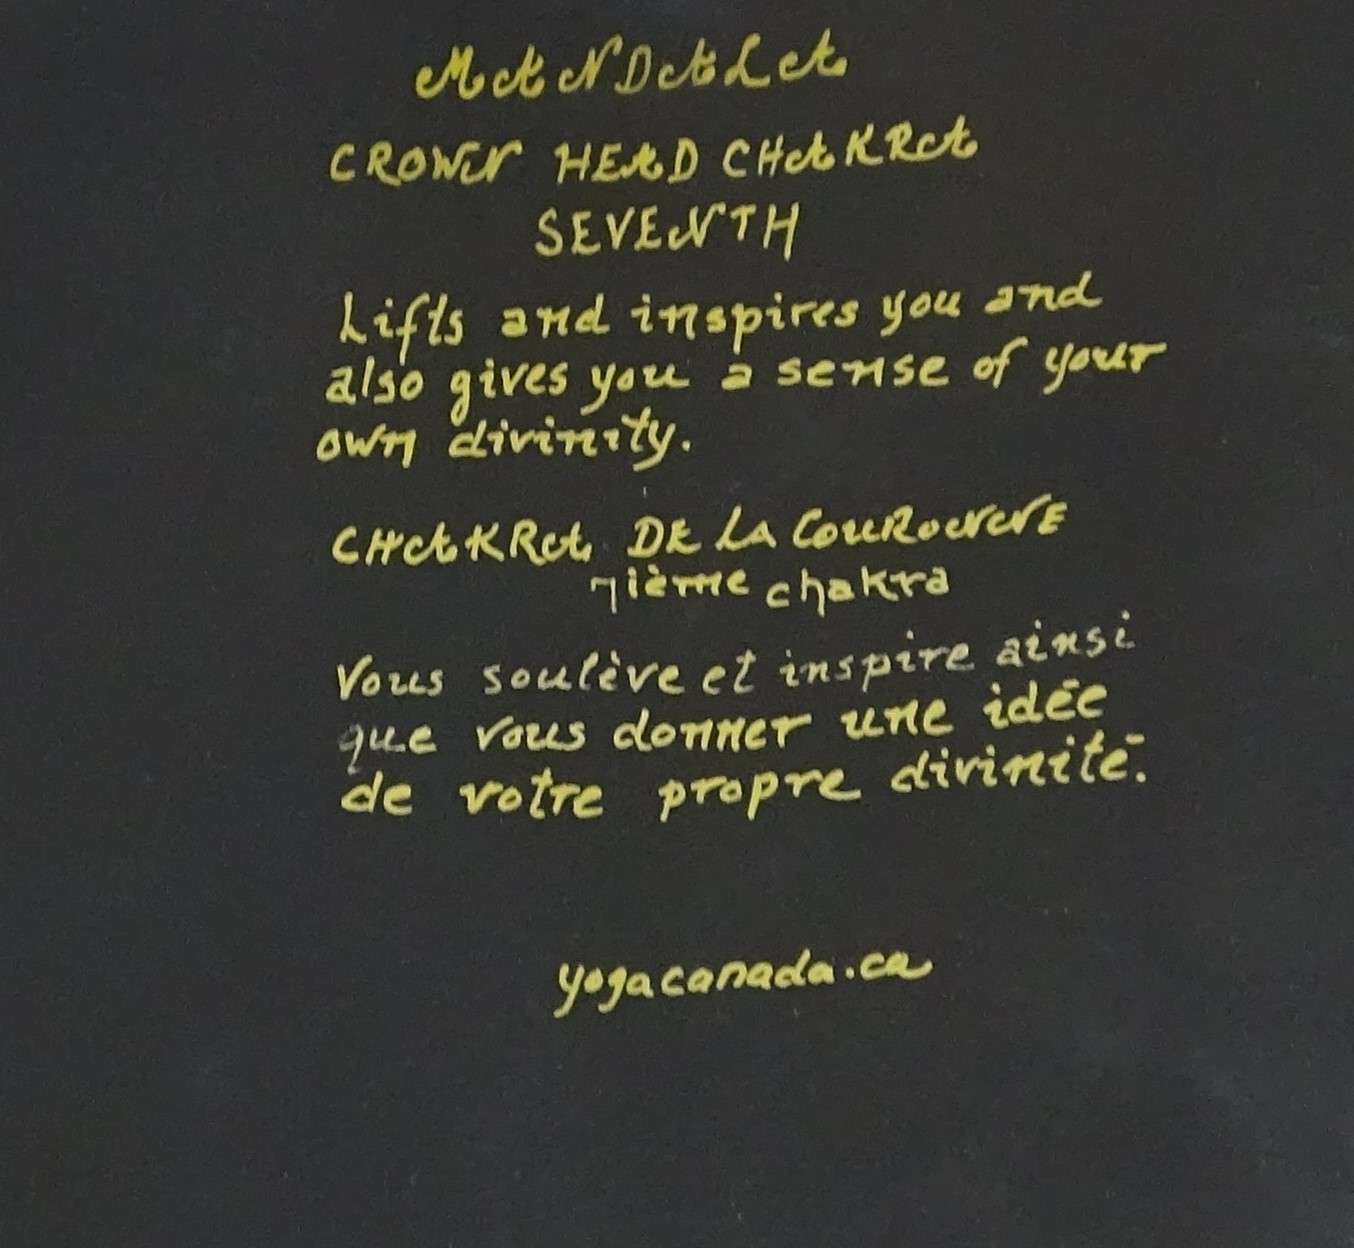 MANDALA
CROWN HEAD CHAKRA
SEVENTH
Lifts and inspires you and
also gives you a sense of your
own divinity.
CHAKRA DE LA COURONNE
7ième chakra
Vous soulève et inspire ainsi
que vous donner une idée
de votre propre divinité.
yogacanada.ca